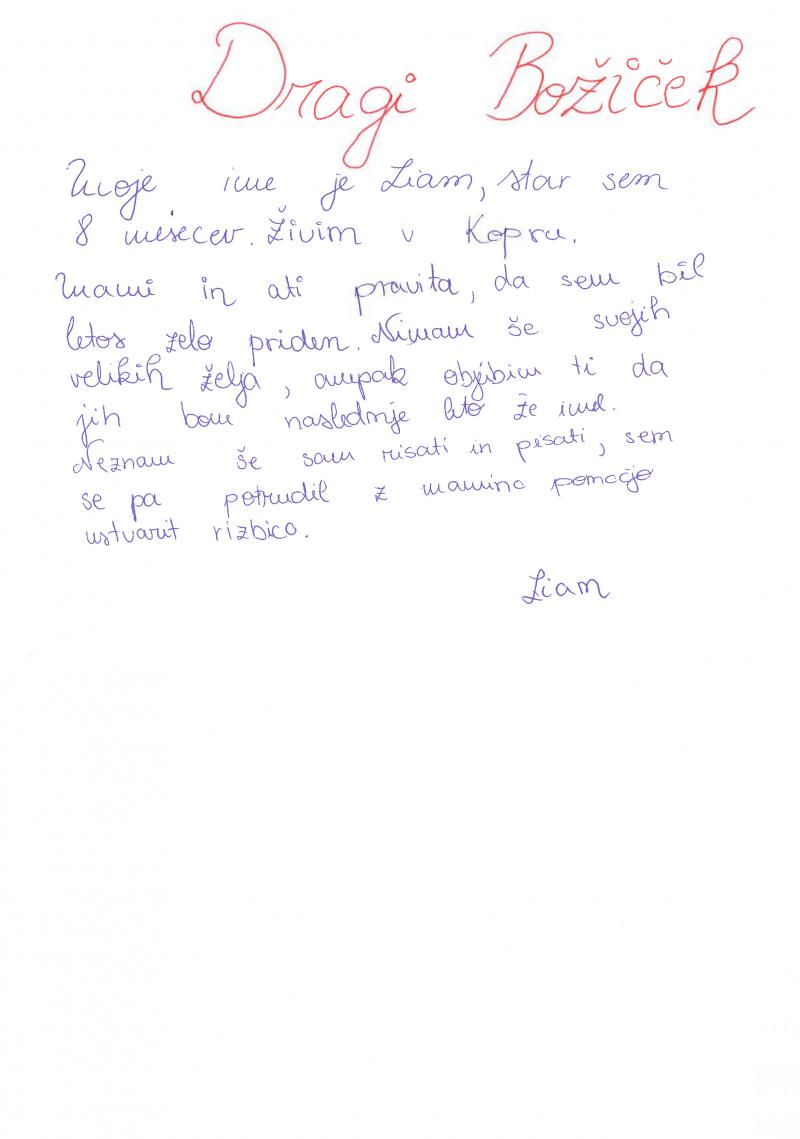 Dragi Božiček
Moje ime je Liam, star sem
8 mesecev. Živim v Kopru.
Mami in ati pravita, da sem bil
letos zelo priden. Nimam še svojih
velikih želja, ampak objubim ti da
jih bom naslednje leto že imel.
Neznam še sam risati in pisati, sem
se pa potrudil z mamino pomočjo
ustvarit rizbico.
Liam